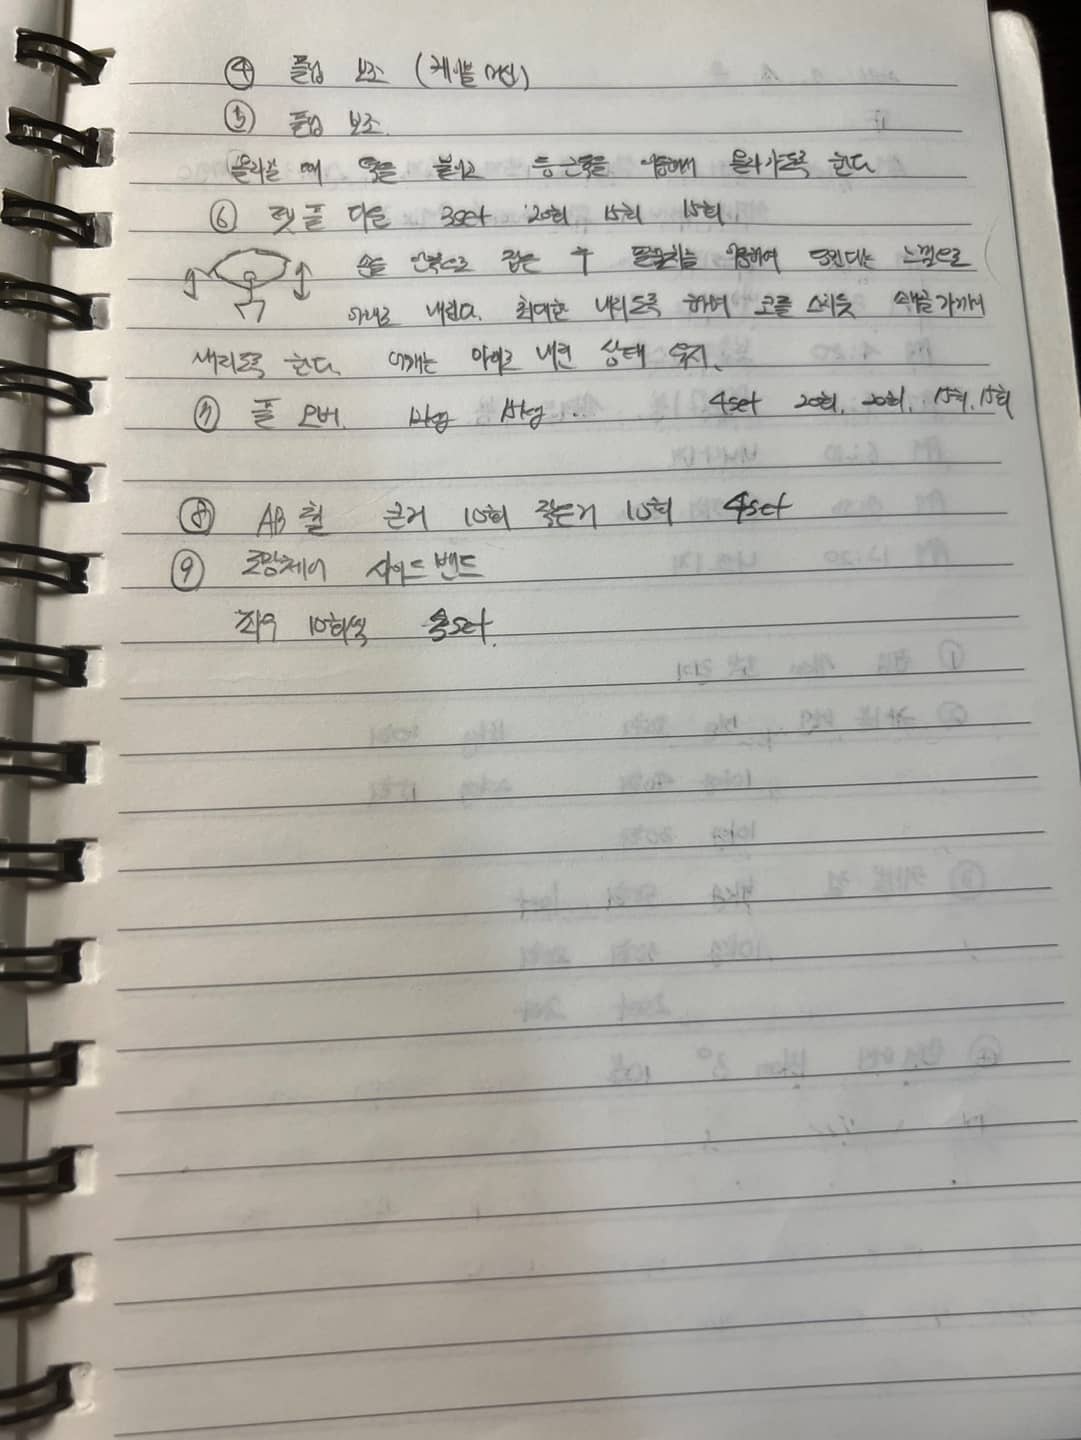 ④ 풀업 보조 (케이블 머신)
⑤ 풀업 보조.
올라갈 때 등근육을 이용해서 올라가도록 한다
⑥ 렛 풀 다운 3set 20회 15회 15회.
손을 안쪽으로 잡은 후 팔꿈치를 이용하여 당긴다는 느낌으로
아래로 내린다. 최대한 내리도록 하며 코를 스치듯 가까이
내리도록 한다. 어깨는 아래로 내린 상태 유지.
⑦ 풀 오버. 4set 20회, 20회, 15회, 15회
⑧ AB 휠 긴거 10회 짧은거 10회 4set
⑨ 로만체어 사이드 밴드
좌우 10회씩 set.